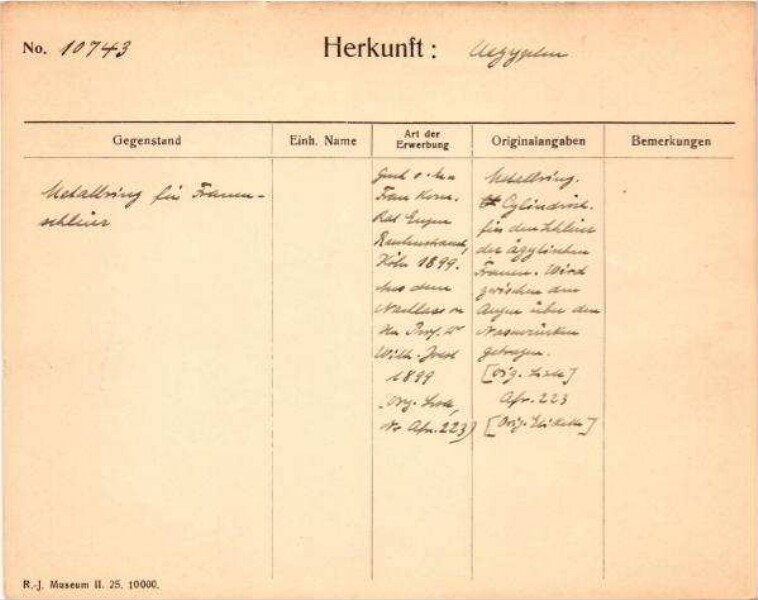 No. 10743
Herkunft: Aegypten
Gegenstand
Einh. Name
Art der Erwerbung
Originalangaben
Bemerkungen
Metallring für Frauen-
schleier
Frau Kom.
Rat Eugen
Rautenstrauch,
Köln 1899.
Aus dem
Nachlass
Prof. Dr
Wilh. Joest
1899
Orig. Liste,
No Afr. 223)
Metallring.
Cylindrisch.
für den Schleier
der ägyptischen
Frauen. Wird
zwischen den
Augen über dem
Nasenrücken
getragen.
[Orig. Liste]
Afr. 223
[Orig. Etikette]
R.-J. Museum II. 25. 10000.